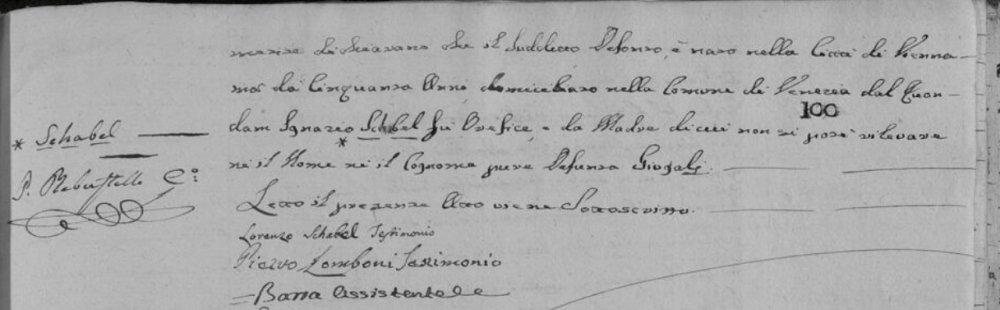 mente dichiarano che il suddetto Defonto, è nato nella Città di Vienna
mà da Cinquanta Anni domiciliato nella Comune di Venezia dal Quon-
100
* Schabel
dam Ignazio Schabel fù Orefice, e da Madre di cui non si potè rilevare
*
nè il Nome nè il Cognome pure Defonta
P. Rebustello
Letto il presente Atto viene Sottoscritto.
Lorenzo Schabel Testimonio
Pietro Lomboni Testimonio
Barra Assistente